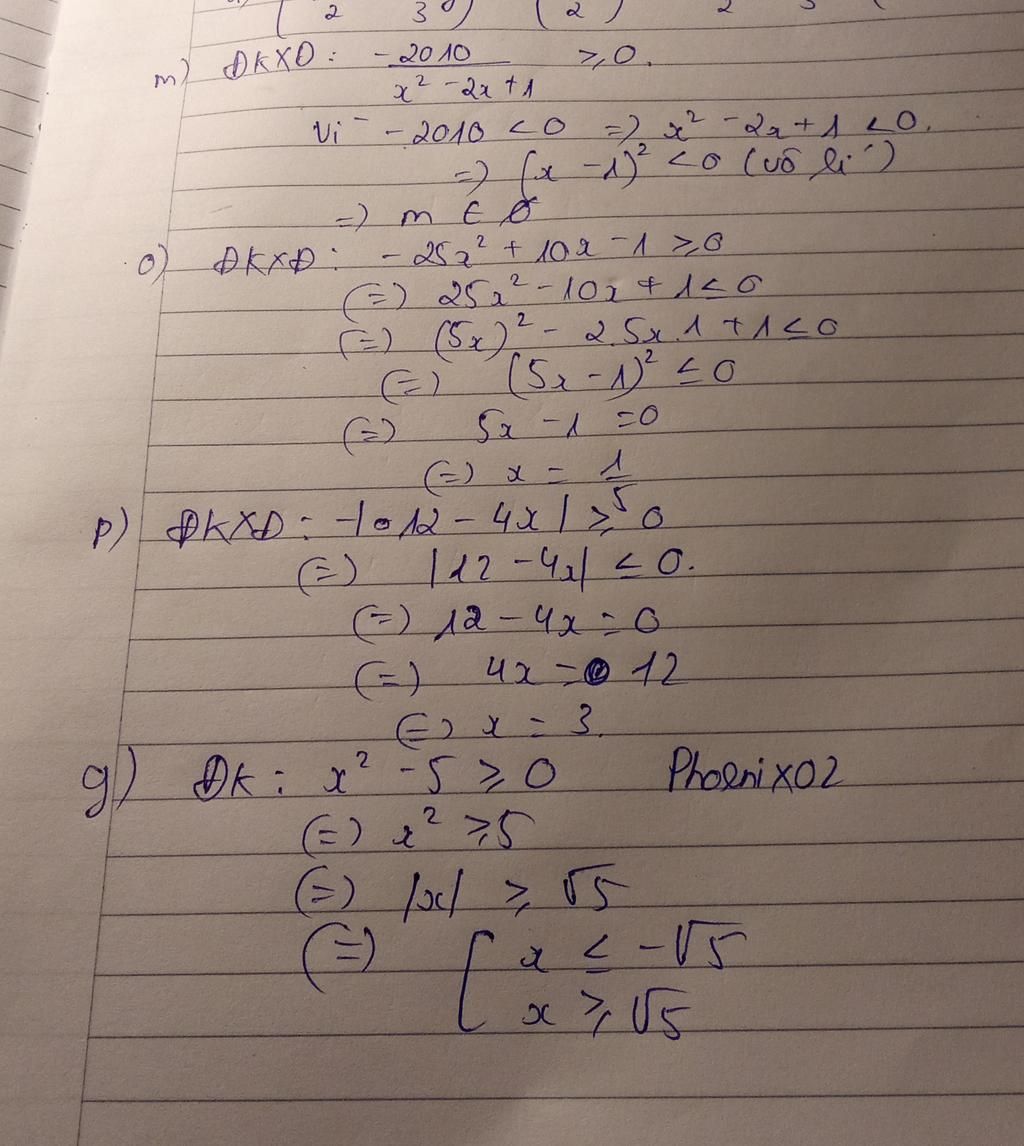 2 3 2 2
m) ĐKXĐ: -2010/x² -2x +1 ≥ 0.
Vì -2010 < 0 => x² -2x + 1 < 0.
=> (x -1)² < 0 (vô lí)
=> m ∈ ∅
o) ĐKXĐ: -25x² + 10x -1 ≥ 0
(=) 25x² -10x + 1 ≤ 0
(=) (5x)² - 2.5x.1 + 1 ≤ 0
(=) (5x -1)² ≤ 0
(=) 5x -1 = 0
(=) x = 1/5
p) ĐKXĐ: -|12 - 4x| ≥ 0
(=) |12 - 4x| ≤ 0.
(=) 12 - 4x = 0
(=) 4x = 12
(=) x = 3.
g) ĐK: x² - 5 ≥ 0 Phoenix02
(=) x² ≥ 5
(=) |x| ≥ √5
(=) [ x ≤ -√5
x ≥ √5